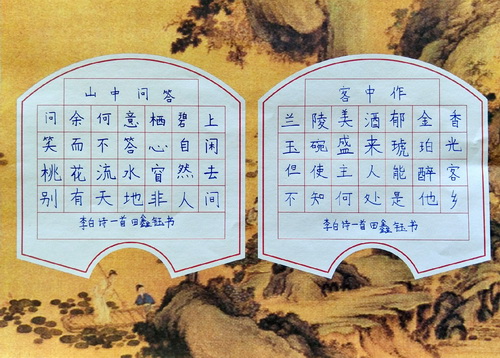 山中问答
问余何意栖碧上
笑而不答心自闲
桃花流水窅然去
别有天地非人间
李白诗一首 田鑫钰书
客中作
兰陵美酒郁金香
玉碗盛来琥珀光
但使主人能醉客
不知何处是他乡
李白诗一首 田鑫钰书